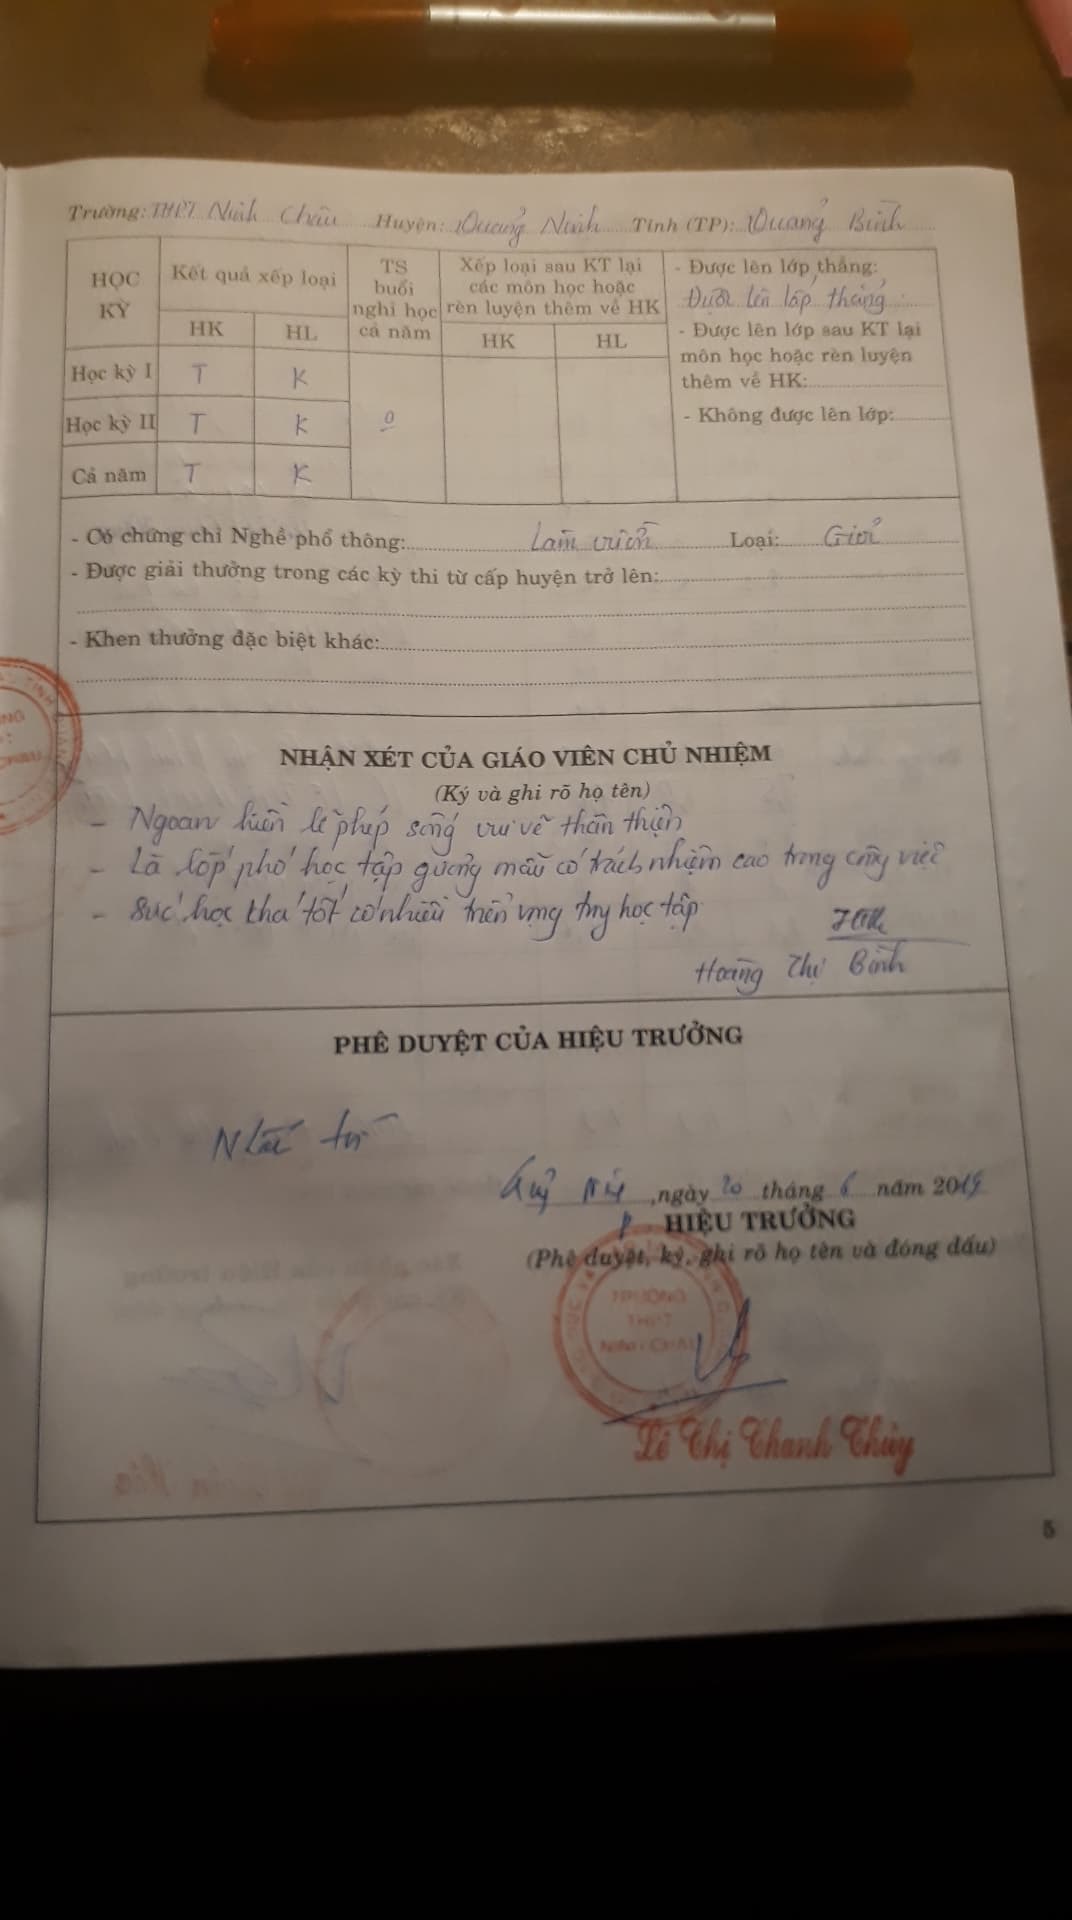 Trường: THPT Ninh Châu Huyện: Quảng Ninh Tỉnh (TP): Quảng Bình
HỌC KỲ
Kết quả xếp loại
TS buổi nghỉ học cả năm
Xếp loại sau KT lại các môn học hoặc rèn luyện thêm về HK
- Được lên lớp thẳng:
Được lên lớp thẳng
- Được lên lớp sau KT lại
môn học hoặc rèn luyện
thêm về HK:
- Không được lên lớp:
HK HL HK HL
Học kỳ I T K
Học kỳ II T K 0
Cả năm T K
- Có chứng chỉ Nghề phổ thông: Làm vườn Loại: Giỏi
- Được giải thưởng trong các kỳ thi từ cấp huyện trở lên:
- Khen thưởng đặc biệt khác:
NHẬN XÉT CỦA GIÁO VIÊN CHỦ NHIỆM
(Ký và ghi rõ họ tên)
- Ngoan hiền lễ phép sống vui vẻ thân thiện
- Là lớp phó học tập gương mẫu có trách nhiệm cao trong công việc
- Sức học khá tốt có nhiều triển vọng trong học tập
Hoàng Thị Bình
PHÊ DUYỆT CỦA HIỆU TRƯỞNG
Nhất trí
, ngày 20 tháng 6 năm 2019
HIỆU TRƯỞNG
(Phê duyệt, ký, ghi rõ họ tên và đóng dấu)
TRƯỜNG
THPT
NINH CHÂU
Lê Thị Thanh Thủy
5